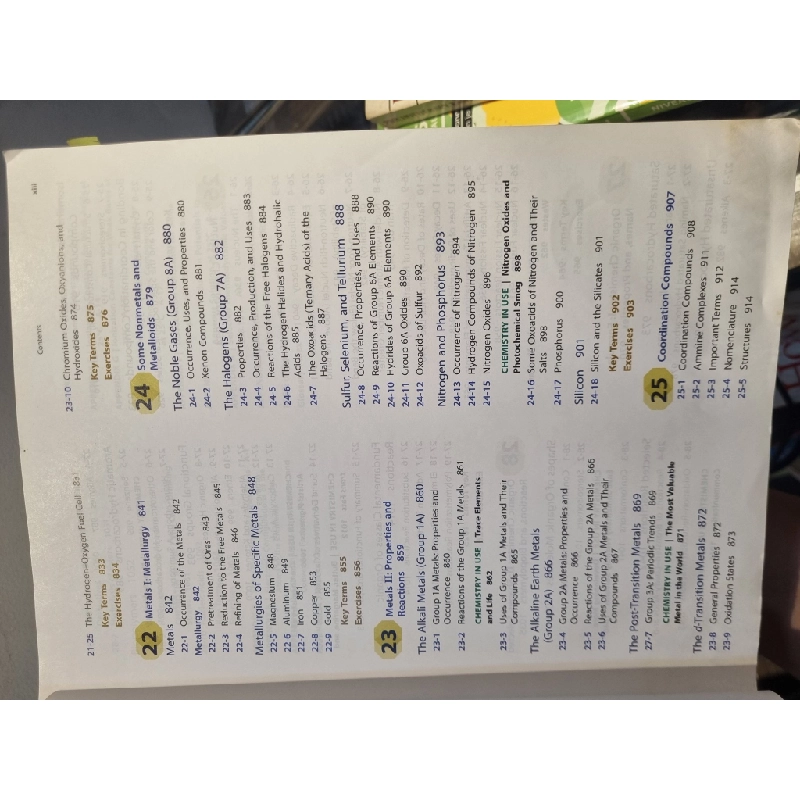 Contents
xiii
21-25 The Hydrogen–Oxygen Fuel Cell 831
Key Terms 833
Exercises 834
22 Metals I: Metallurgy 841
Metals 842
22-1 Occurrence of the Metals 842
Metallurgy 842
22-2 Pretreatment of Ores 843
22-3 Reduction to the Free Metals 845
22-4 Refining of Metals 846
Metallurgies of Specific Metals 848
22-5 Magnesium 848
22-6 Aluminum 849
22-7 Iron 851
22-8 Copper 853
22-9 Gold 855
Key Terms 855
Exercises 856
23 Metals II: Properties and
Reactions 859
The Alkali Metals (Group 1A) 860
23-1 Group 1A Metals: Properties and
Occurrence 860
23-2 Reactions of the Group 1A Metals 861
CHEMISTRY IN USE | Trace Elements
and Life 862
23-3 Uses of Group 1A Metals and Their
Compounds 865
The Alkaline Earth Metals
(Group 2A) 866
23-4 Group 2A Metals: Properties and
Occurrence 866
23-5 Reactions of the Group 2A Metals 866
23-6 Uses of Group 2A Metals and Their
Compounds 867
The Post-Transition Metals 869
23-7 Group 3A: Periodic Trends 869
CHEMISTRY IN USE | The Most Valuable
Metal in the World 871
The d-Transition Metals 872
23-8 General Properties 872
23-9 Oxidation States 873
23-10 Chromium Oxides, Oxyanions, and
Hydroxides 874
Key Terms 875
Exercises 876
24 Some Nonmetals and
Metalloids 879
The Noble Gases (Group 8A) 880
24-1 Occurrence, Uses, and Properties 880
24-2 Xenon Compounds 881
The Halogens (Group 7A) 882
24-3 Properties 882
24-4 Occurrence, Production, and Uses 883
24-5 Reactions of the Free Halogens 884
24-6 The Hydrogen Halides and Hydrohalic
Acids 885
24-7 The Oxoacids (Ternary Acids) of the
Halogens 887
Sulfur, Selenium, and Tellurium 888
24-8 Occurrence, Properties, and Uses 888
24-9 Reactions of Group 6A Elements 890
24-10 Hydrides of Group 6A Elements 890
24-11 Group 6A Oxides 890
24-12 Oxoacids of Sulfur 892
Nitrogen and Phosphorus 893
24-13 Occurrence of Nitrogen 894
24-14 Hydrogen Compounds of Nitrogen 895
24-15 Nitrogen Oxides 896
CHEMISTRY IN USE | Nitrogen Oxides and
Photochemical Smog 898
24-16 Some Oxoacids of Nitrogen and Their
Salts 898
24-17 Phosphorus 900
Silicon 901
24-18 Silicon and the Silicates 901
Key Terms 902
Exercises 903
25 Coordination Compounds 907
25-1 Coordination Compounds 908
25-2 Ammine Complexes 911
25-3 Important Terms 912
25-4 Nomenclature 914
25-5 Structures 914